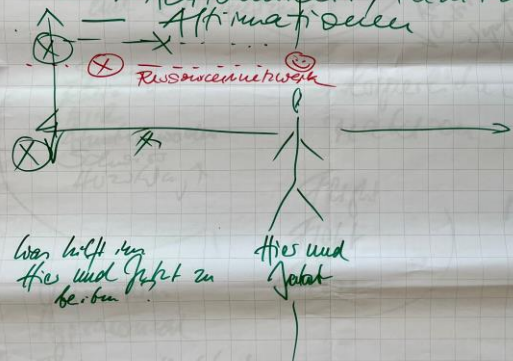 — Affirmationen
Ressourcennetzwerk
Was hilft im
Hier und Jetzt zu
beiben.
Hier und
Jetzt